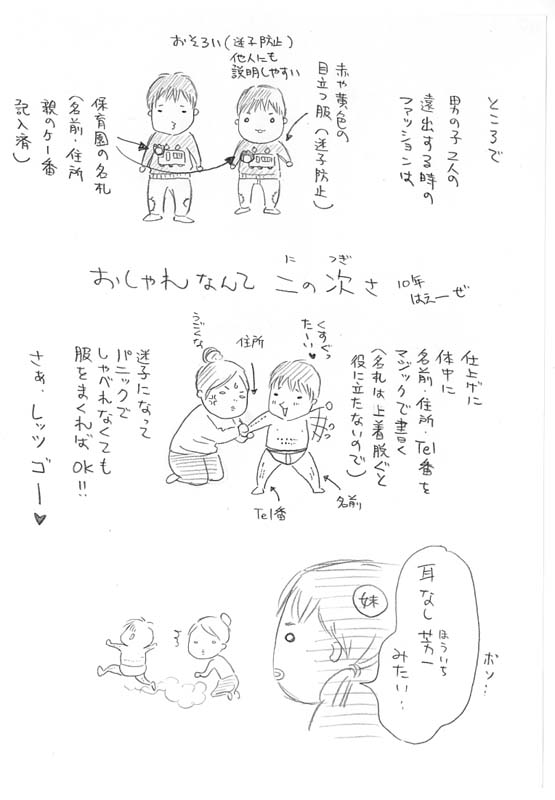 ところで
男の子2人の
遠出する時の
ファッションは、
赤や黄色の
目立つ服（迷子防止）
おそろい（迷子防止）
他人にも
説明しやすい
保育園の名札
（名前・住所
親のケー番
記入済）
おしゃれなんて 二の次さ
に つぎ
10年
はえーぜ
仕上げに
体中に
名前・住所・Tel番を
マジックで書く
（名札は上着脱ぐと
役に立たないので）
くすぐっ
たい♥
住所
うごくな
名前
Tel番
迷子になって
パニックで
しゃべれなくても
服をまくればOK!!
さぁ、レッツゴー♥
ボソ…
耳なし芳一
ほういち
みたい…
妹